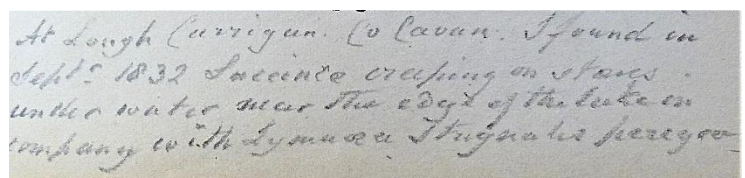 At Lough Carrigan. Co Cavan. I found in
Septr 1832 Succinea creeping on stones.
under water near the edge of the lake in
company with Lymnæa Stagnalis